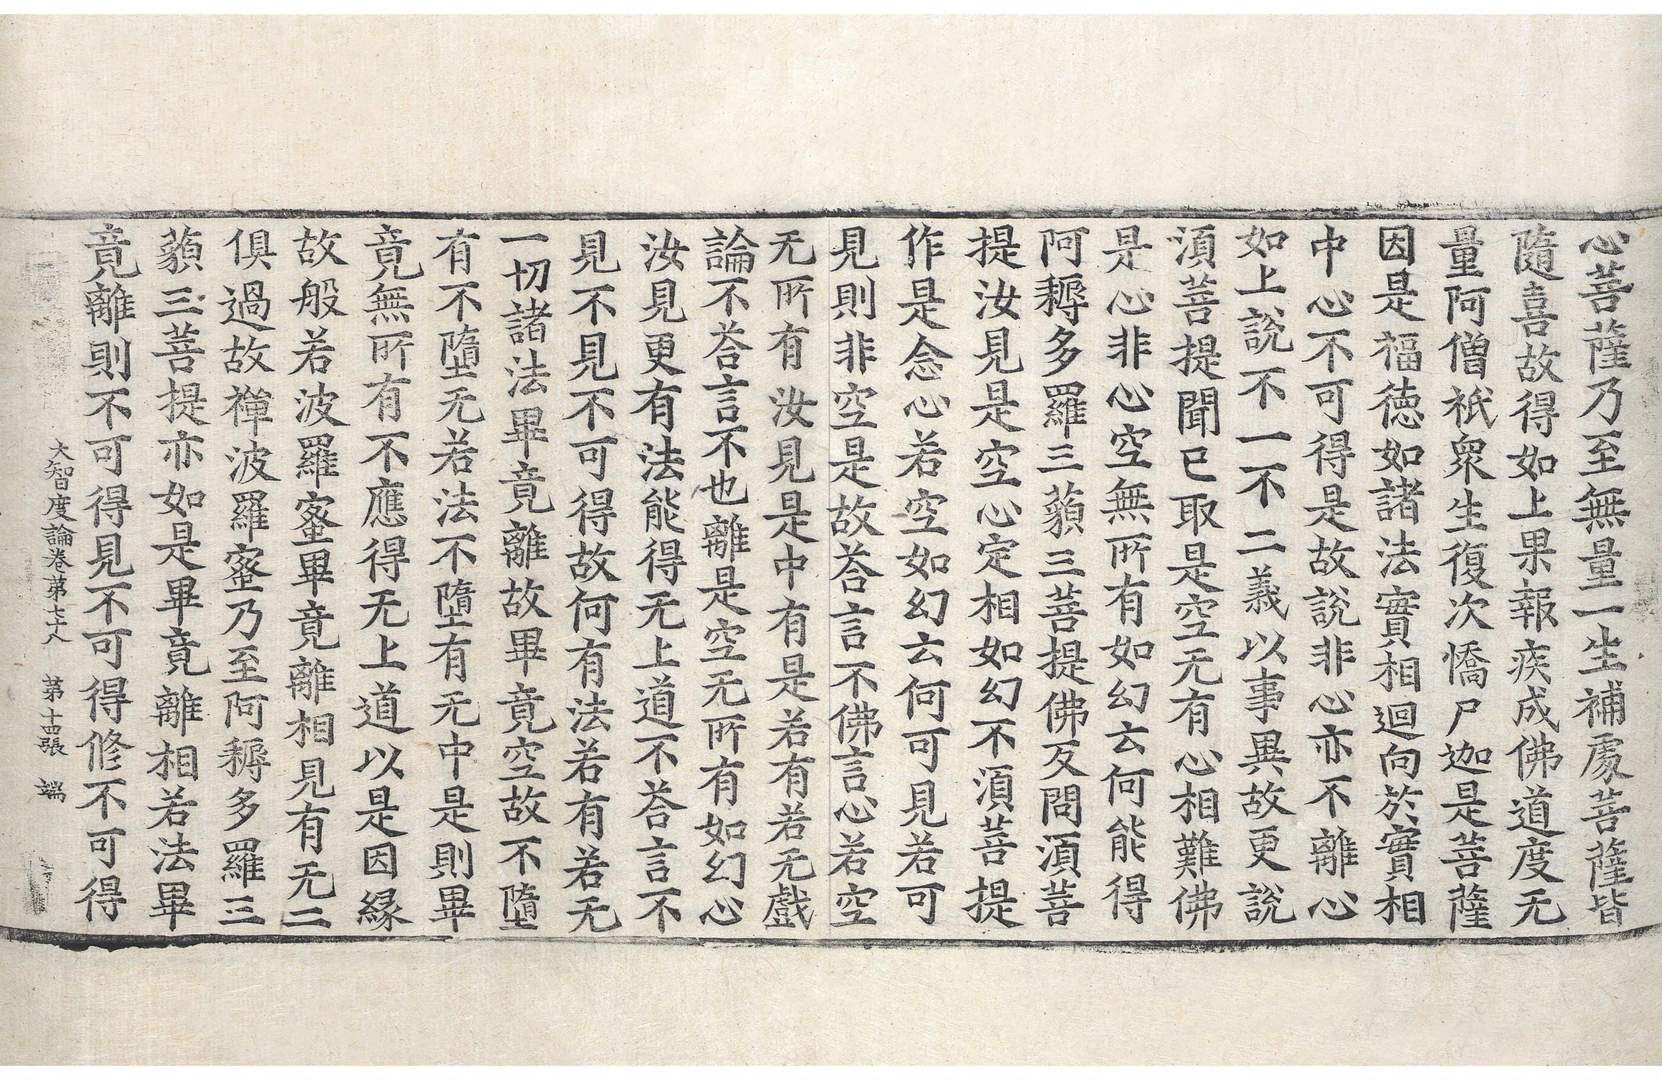 心菩薩乃至無量一生補處菩薩皆
隨喜故得如上果報疾成佛道度无
量阿僧祇衆生復次憍尸迦是菩薩
因是福德如諸法實相迴向於實相
中心不可得是故說非心亦不離心
如上說不一不二義以事異故更說
湏菩提聞已取是空无有心相難佛
是心非心空無所有如幻云何能得
阿耨多羅三藐三菩提佛反問湏菩
提汝見是空心定相如幻不湏菩提
作是念心若空如幻云何可見若可
見則非空是故荅言不佛言心若空
无所有汝見是中有是若有若无戲
論不荅言不也離是空无所有如幻心
汝見更有法能得无上道不荅言不
見不見不可得故何有法若有若无
一切諸法畢竟離故畢竟空故不墮
有不墮无若法不墮有无中是則畢
竟無所有不應得无上道以是因緣
故般若波羅蜜畢竟離相見有无二
俱過故禪波羅蜜乃至阿耨多羅三
藐三菩提亦如是畢竟離相若法畢
竟離則不可得見不可得修不可得
大智度論卷第七十八 第十四張 端